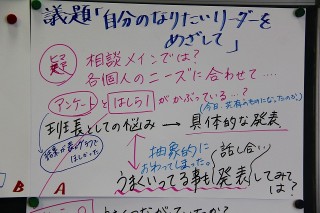 議題「自分のなりたいリーダーを
めざして」
疑
相談メインでは?
各個人のニーズに合わせて…
アンケートとはしら1がかぶっている…?
(今日、共有うものになったのが、)
班長としての悩み → 具体的な発表
結果が表やグラフで
ほしかった
抽象的に
おわってしまった。
(話し合い)
うまくいってる事も発表してみて
は?
B
A